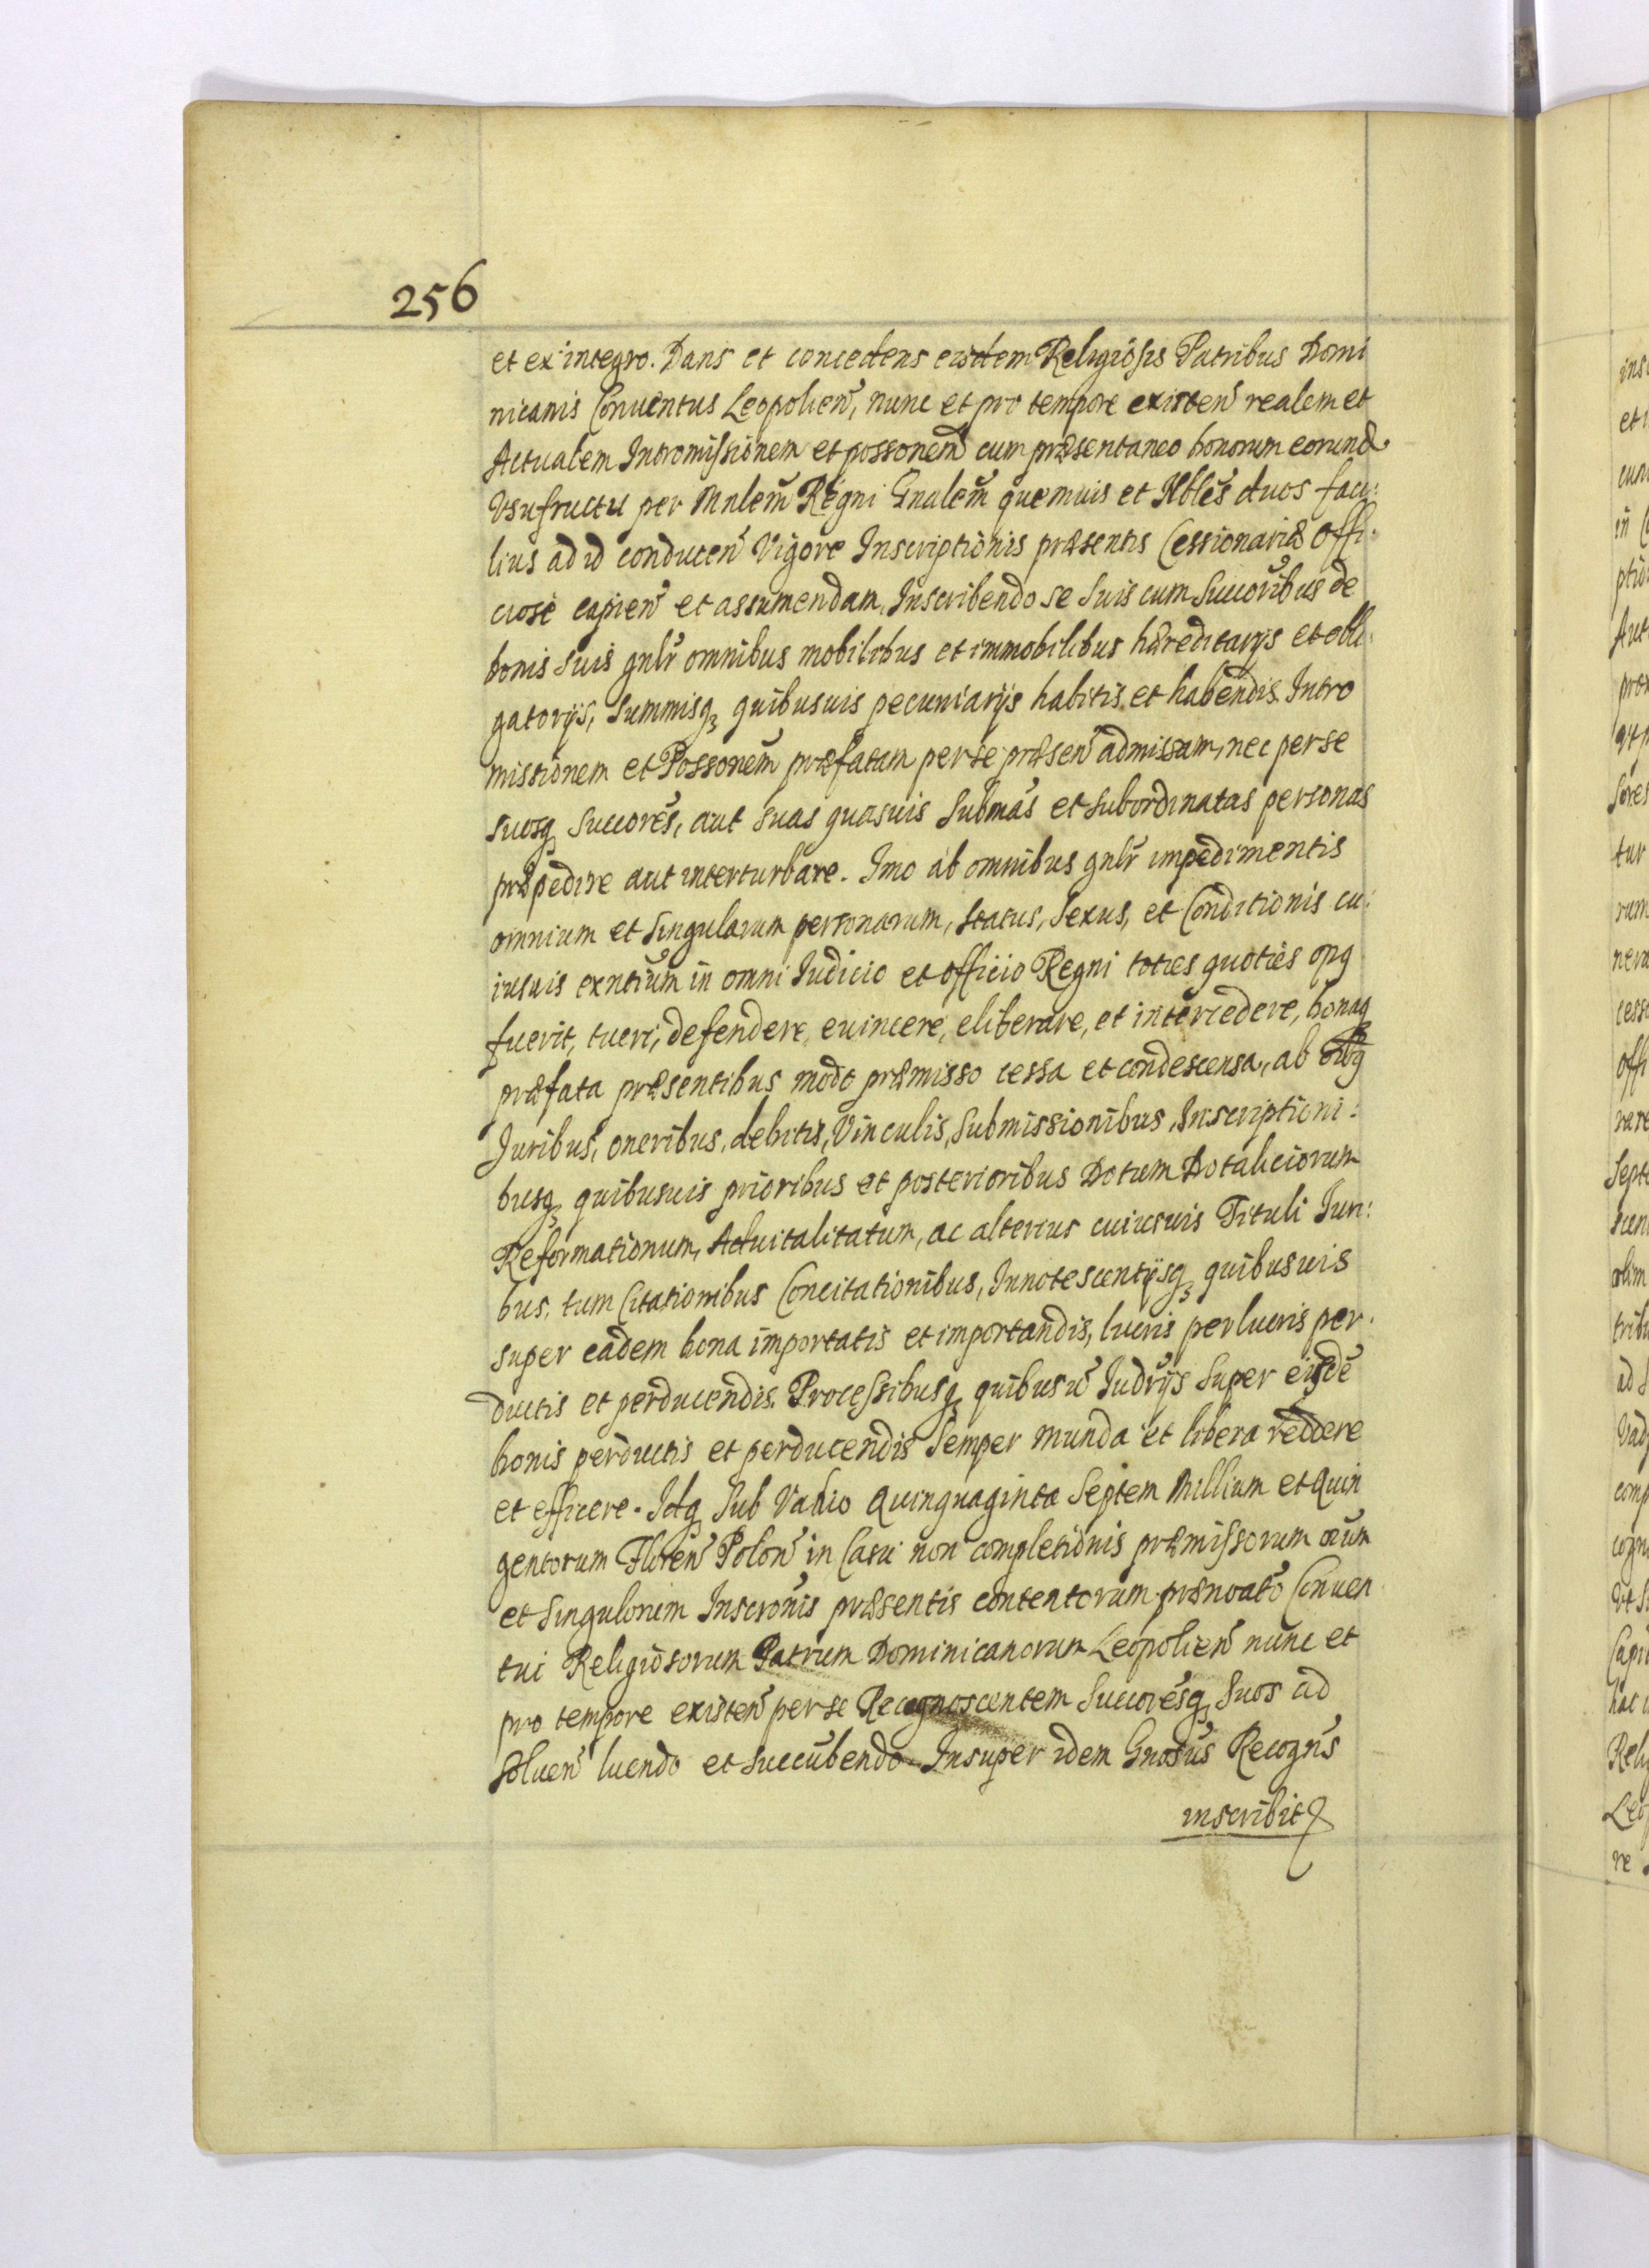 256
et ex integro. Dans et concedens eisdem Religiosis Patribus Domi
nicanis Conuentus Leopolien̄, nunc et pro tempore existen̄ realem et
Actualem Intromissionem et possonem̄ cum præsentaneo bonorum eorund.
Vsufructu per Mnlem̄ Regni Gnalem̄ quemuis et Nbles̄ duos faci:
lius ad id conducen̄ Vigore Inscriptionis præsentis Cessionariæ Offi:
ciose capien̄ et assumendam, Inscribendo se suis cum Succoribus de
bonis suis gnlr̄ omnibus mobilibus et immobilibus hæreditarijs et obli:
gatorijs, Summisq3 quibusuis pecuniarijs habitis et habendis. Intro
missionem et Possonem̄ præfatam per se præsen̄ admissam, nec per se
suosq3 Succores̄, aut suas quasuis Submas̄ et subordinatas personas
præpedire aut interturbare. Imo ab omnibus gnlr̄ impedimentis
omnium et singularum personarum, status, Sexus, et Conditionis cu:
iusuis exntium̄ in omni Iudicio et officio Regni toties quoties opq
fuerit, tueri, defendere, euincere, eliberare, et intercedere, bonaq
præfata præsentibus modo præmisso cessa et condescensa, ab oibq
Iuribus, oneribus, debitis, Vinculis, Submissionibus, Inscriptioni:
busq3 quibusuis prioribus et posterioribus Dotum Dotaliciorum
Reformationum, Aduitalitatum, ac alterius cuiusuis Tituli Iuri:
bus, tum Citationibus Concitationibus, Innotescentijsq3 quibusuis
super eadem bona importatis et importandis, lucris perlucris per:
ductis et perducendis. Processibusq3 quibusū Iudrijs̄ Super eisdē
bonis perductis et perducendis Semper munda et libera reddere
et efficere. Idq3 Sub Vadio Quinquaginta Septem Millium et Quin
gentorum Floren̄ Polon̄ in Casu non completionis præmissorum oīum
et Singulorum Inscronis̄ præsentis contentorum prænoatō Conuen
tui Religiosorum Patrum Dominicanorum Leopolien̄ nunc et
pro tempore existen̄ per se Recognoscentem Succoresq3̄ Suos ad
soluen̄ luendo et succūbendo. Insuper idem Gnosus̄ Recogns̄
inscribit